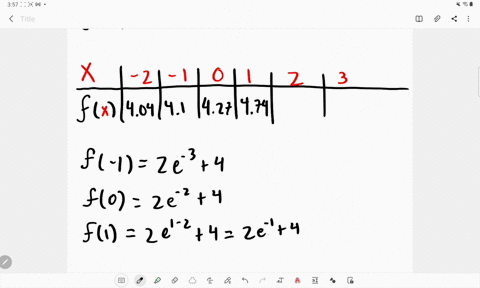 3:57
Title
X -2 -1 0 1 2 3
f(x) 4.04 4.1 4.27 4.74
f(-1) = 2e^-3 + 4
f(0) = 2e^-2 + 4
f(1) = 2e^1-2 + 4 = 2e^-1 + 4